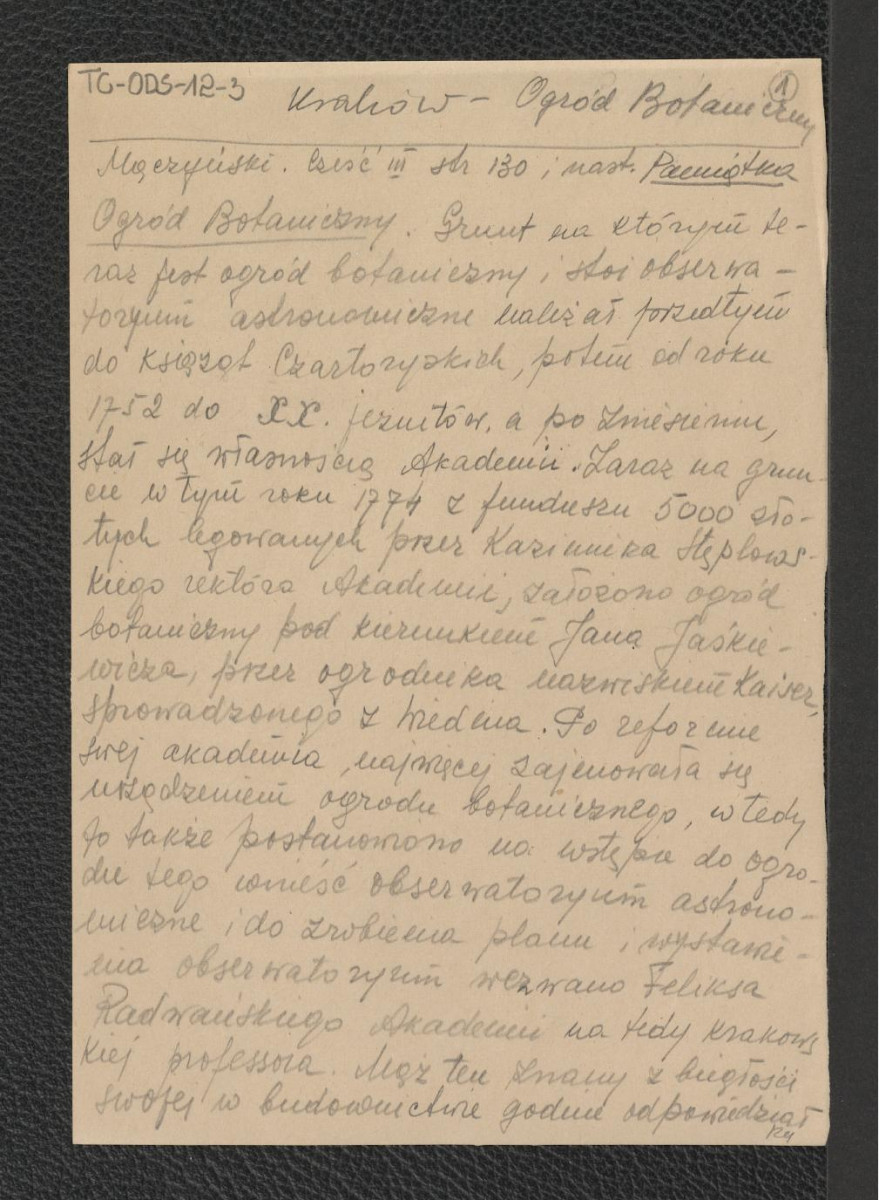 TG-ODS-12-3
1
Kraków - Ogród Botaniczny
Mączyński. Cześć III str 130 i nast. Pamiątka
Ogród Botaniczny. Grunt na którym te-
raz jest ogród botaniczny i stoi obserwa-
toryum astronomiczne należał przedtym
do Książąt Czartoryskich, potem od roku
1752 do XX. jezuitów, a po zniesieniu,
stał się własnością Akademii. Zaraz na grun-
cie w tym roku 1774 z funduszu 5000 zło-
tych legowanych przez Kazimirza Stęplows-
kiego rektora Akademii, założono ogród
botaniczny pod kierunkiem Jana Jaśkie-
wicza, przez ogrodnika nazwiskiem Kaiser,
sprowadzonego z Wiednia. Po reformie
swej akademia, najwięcej zajmowała się
urządzeniem ogrodu botanicznego, wtedy
to także postanowiono na wstępie do ogro-
du tego wnieść obserwatoryum astrono-
miczne i do zrobienia planu i wystawie-
nia obserwatoryum wezwano Feliksa
Radwańskiego Akademii na tedy krakows
kiej professora. Mąż ten znany z biegłości
swojej w budownictwie godnie odpowiedział